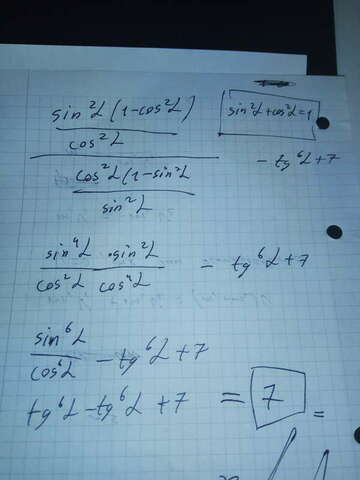 sin²α(1-cos²α)
cos²α
sin²α+cos²α=1
cos²α(1-sin²α
sin²α
- tg⁶α+7
sin⁴α · sin²α
cos²α cos⁴α
= tg⁶α+7
sin⁶α
cos⁶α
- tg⁶α+7
tg⁶α-tg⁶α+7 = 7 =